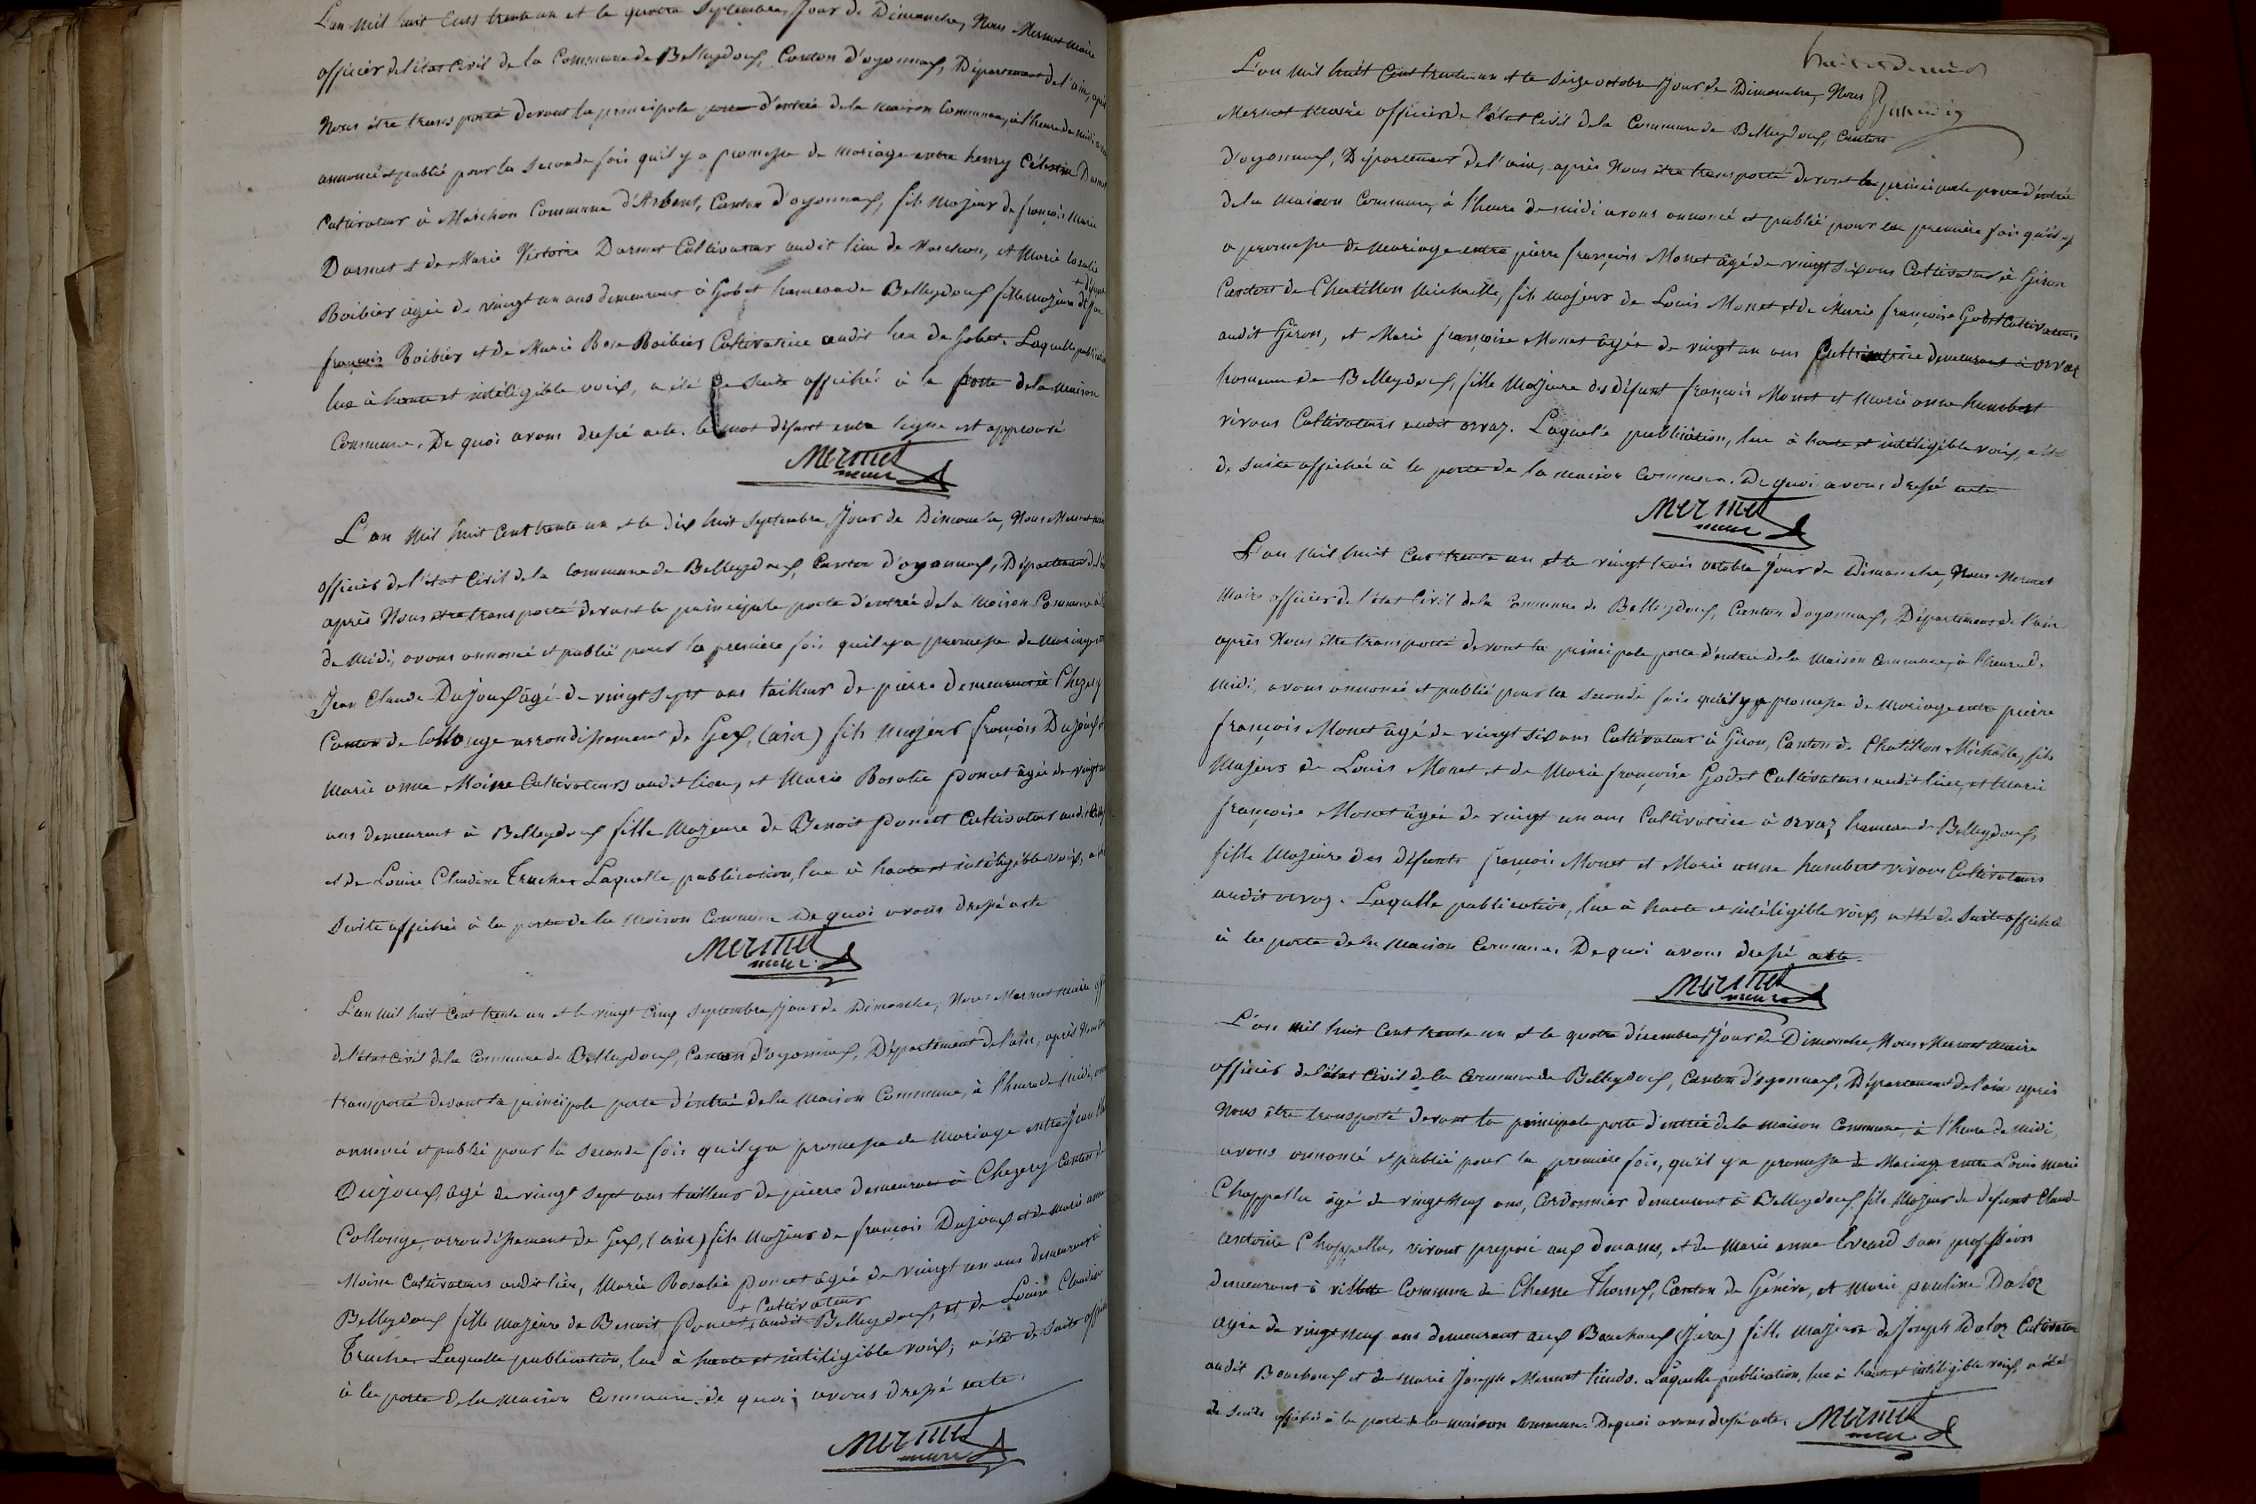 L'an mil huit Cent trente un et le quatre Septembre, Jour de Dimanche, Nous Mermet maire
officier de l'état Civil de la Commune de Belleydoux, Canton d'oyonnax, Département de l'ain, après
Nous être transporté devant la principale porte d'entrée de la maison Commune, à l'heure de midi avons
annoncé et publié pour la Seconde fois qu'il y a promesse de mariage entre henry Célestin Darmet
Cultivateur à Marchon Commune d'Arbent, Canton d'oyonnax, fils Majeur de françois Marie
Darmet et de Marie Victoire Darmet Cultivateur audit lieu de Marchon, et Marie Rosalie
Boibier agée de vingt un ans demeurant à Gobet hameau de Belleydoux fille majeure
françois Boibier et de Marie Rose Boibier Cultivatrice audit lieu de Gobet. Laquelle publication
lue à haute et intéligible voix, a été de Suite affichée à la porte de la maison
Commune. De quoi avons dressé acte. le mot défunt entre ligne est approuvé
Mermet
maire
L'an Mil huit Cent trente un et le dix huit Septembre, Jour de Dimanche, Nous Mermet maire
officier de l'état Civil de la Commune de Belleydoux, Canton d'oyonnax, Département de l'ain
après Nous être transporté devant la principale porte d'entrée de la Maison Commune
de Midi, avons annoncé et publié pour la première fois qu'il y a promesse de Mariage
Jean Claude Dujoux âgé de vingt Sept ans tailleur de pierre demeurant à Chezery
Canton de Collonge arrondissement de Gex, (ain) fils Majeur françois Dujoux
Marie anne Moine Cultivateurs audit lieu, et Marie Rosalie Poncet âgée de vingt un
ans demeurant à Belleydoux fille Majeure de Benoit Poncet Cultivateur audit
et de Louise Claudine Trucher Laquelle publication, lue à haute et intéligible voix, a été
De Suite affichée à la porte de la Maison Commune De quoi avons dressé acte
Mermet
maire
L'an Mil huit Cent trente un et le vingt Cinq Septembre, Jour de Dimanche, Nous Mermet maire officier
de l'état Civil de la Commune de Belleydoux, Canton d'oyonnax, Département de l'ain, après Nous être
transporté devant la principale porte d'entrée de la maison Commune, à l'heure de Midi, avons
annoncé et publié pour la Seconde fois qu'il y a promesse de Mariage entre Jean
Dujoux, agé de vingt Sept ans tailleur de pierre demeurant à Chezery Canton de
Collonge, arrondissement de Gex, (ain) fils Majeur de françois Dujoux et de Marie anne
Moine Cultivateurs audit lieu, Marie Rosalie Poncet âgée de vingt un ans demeurant à
+ Cultivateur
Belleydoux fille majeure de Benoit Poncet + audit Belleydoux, et de Louise Claudine
Trucher Laquelle publication, lue à haute et intéligible voix, a été de Suite affichée
à la porte de la maison Commune. de quoi avons dressé acte.
Mermet
maire
L'an Mil huit Cent trente un et le Seize octobre Jour de Dimanche, Nous
Mermet Maire officier de l'état Civil de la Commune de Belleydoux, Canton
d'oyonnax, Département de l'ain, après Nous être transporté devant la principale porte d'entrée
de la Maison Commune, à l'heure de midi avons annoncé et publié pour la première fois qu'il y
a promesse de Mariage entre pierre françois Monet âgé de vingt Six ans Cultivateur à Giron
Canton de Chatillon Michaille, fils Majeur de Louis Monet et de Marie françoise Godet Cultivateurs
audit Giron, et Marie françoise Monet âgée de vingt un ans Cultivatrice demeurant à orvaz
hameau de Belleydoux, fille Majeure des défunt françois Monet et Marie anne humbert
vivans Cultivateurs audit orvaz. Laquelle publication, lue à haute et intéligible voix, a été
de Suite affichée à la porte de la maison Commune. De quoi avons dressé acte
Mermet
maire
L'an Mil huit Cent trente un et le vingt trois octobre Jour de Dimanche, Nous Mermet
Maire officier de l'état Civil de la Commune de Belleydoux, Canton d'oyonnax, Département de l'ain
après Nous être transporté devant la principale porte d'entrée de la Maison Commune, à l'heure de
Midi, avons annoncé et publié pour la Seconde fois qu'il y a promesse de Mariage entre pierre
françois Monet âgé de vingt Six ans Cultivateur à Giron, Canton de Chatillon Michaille, fils
Majeur de Louis Monet et de Marie françoise Godet Cultivateurs audit lieu, et Marie
françoise Monet âgée de vingt un ans Cultivatrice à orvaz hameau de Belleydoux,
fille Majeure des défunts françois Monet et Marie anne humbert vivans Cultivateurs
audit orvaz. Laquelle publication, lue à haute et intéligible voix, a été de Suite affichée
à la porte de la Maison Commune. De quoi avons dressé acte.
Mermet
maire
L'an Mil huit Cent trente un et le quatre décembre, Jour de Dimanche, Nous Mermet Maire
officier de l'état Civil de la Commune de Belleydoux, Canton d'oyonnax, Département de l'ain après
Nous être transporté devant la principale porte d'entrée de la maison Commune, à l'heure de midi,
avons annoncé et publié pour la première fois, qu'il y a promesse de Mariage entre Louis Marie
Chappellu âgé de vingt Neuf ans, Cordonnier demeurant à Belleydoux, fils Majeur de défunt Claude
antoine Chappellu, vivant preposé aux douanes, et de Marie anne sans profession
demeurant à villette Commune de Chesne Thonex, Canton de Génève, et Marie pauline Daloz
agée de vingt Neuf ans demeurant aux Bouchoux (Jura) fille majeure de Joseph Daloz Cultivateur
audit Bouchoux et de Marie Joseph Mermet Laquelle publication, lue à haute et intéligible voix, a été
de Suite affichée à la porte de la maison Commune. De quoi avons dressé acte.
Mermet
maire